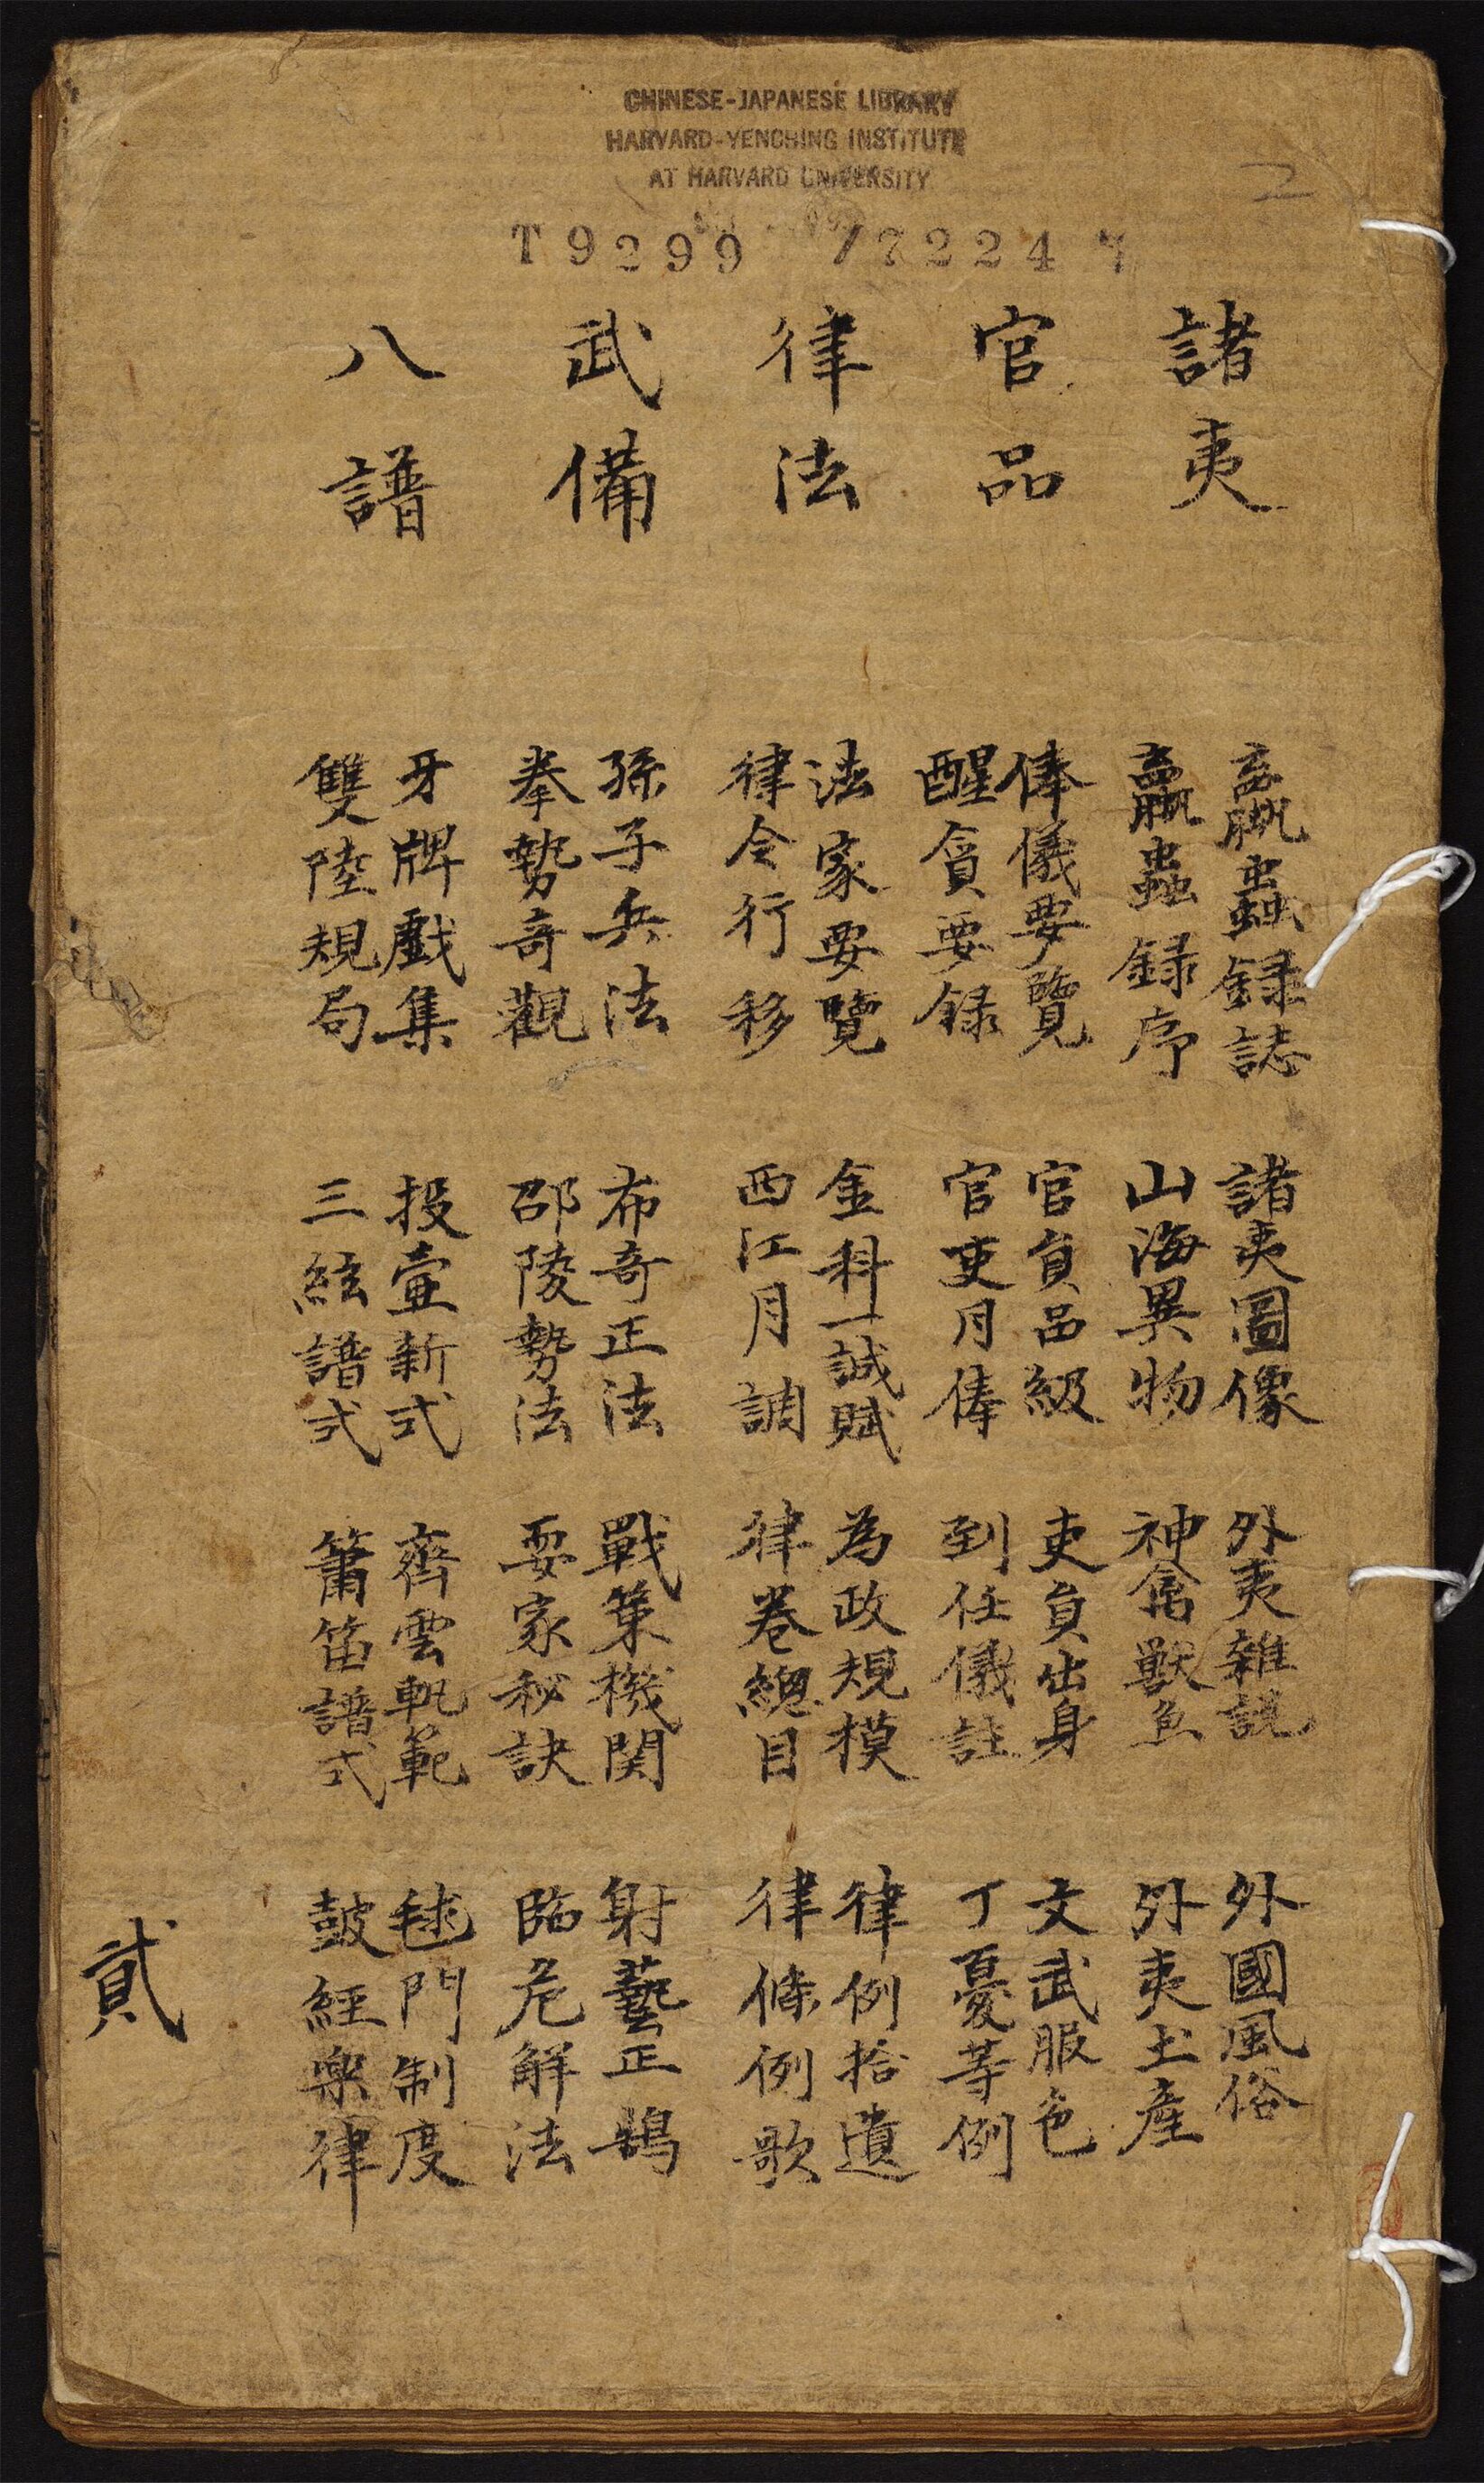 CHINESE-JAPANESE LIBRARY
HARVARD-YENCHING INSTITUTE
AT HARVARD UNIVERSITY
2
T 9299 / 7224
諸夷
官品
律法
武備
八譜
蠃蟲錄誌 諸夷圖像 外夷雜說 外國風俗
蠃蟲錄序 山海異物 神禽獸魚 外夷土產
俸儀要覽 官員品級 吏員出身 文武服色
醒貪要錄 官吏月俸 到任儀註 丁憂等例
法家要覽 金科一誠賦 為政規模 律例拾遺
律令行移 西江月調 律卷總目 律條例歌
孫子兵法 布奇正法 戰策機関 射藝正鵠
拳勢奇觀 邵陵勢法 耍家秘訣 臨危解法
牙牌戲集 投壼新式 齊雲軌範 毬門制度
雙陸規局 三絃譜式 簫笛譜式 鼓經樂律
貳